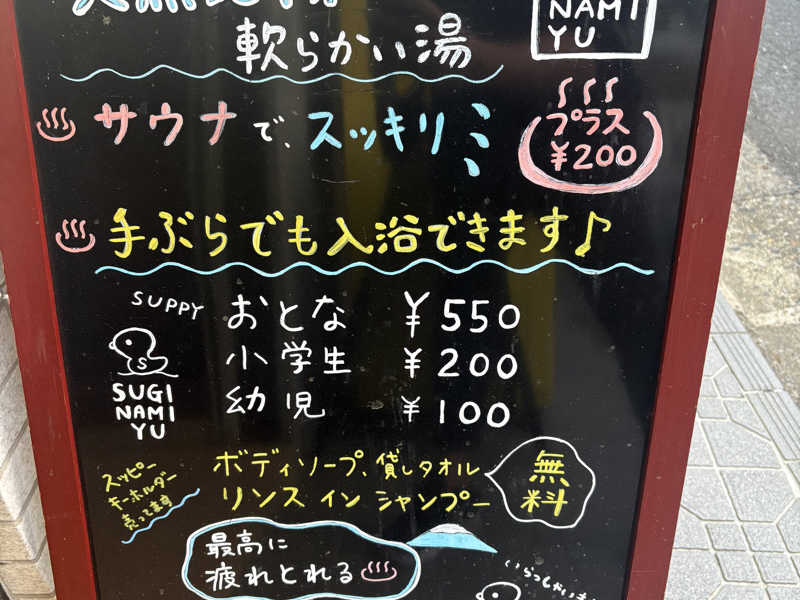 軟らかい湯
NAMI
YU
サウナで、スッキリ
プラス
¥200
手ぶらでも入浴できます♪
SUPPY
おとな ¥550
小学生 ¥200
幼児 ¥100
SUGI
NAMI
YU
スッピー
キーホルダー
売ってます
ボディソープ、貸しタオル
リンスインシャンプー
無料
最高に
疲れとれる♨
いらっしゃいま